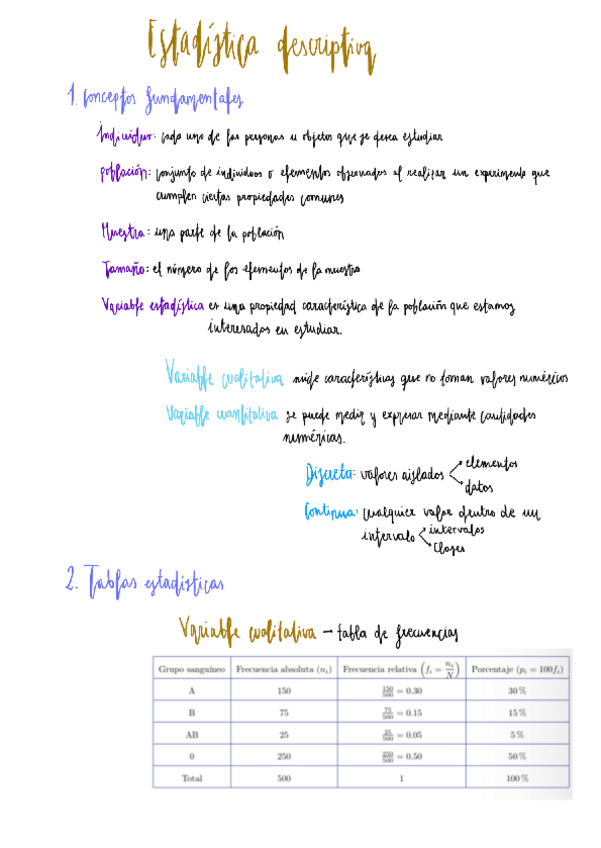 Estadística descriptiva
1. Conceptos fundamentales
Individuo: cada uno de las personas u objetos que se desea estudiar
población: conjunto de individuos o elementos observados al realizar un experimento que
cumplen ciertas propiedades comunes
Muestra: una parte de la población
Tamaño: el número de los elementos de la muestra
Variable estadística es una propiedad característica de la población que estamos
interesados en estudiar.
Variable cualitativa mide características que no toman valores numéricos
Variable cuantitativa se puede medir y expresar mediante cantidades
numéricas.
Discreta: valores aislados elementos
datos
Continua: cualquier valor dentro de un
intervalo intervalos
clases
2. Tablas estadísticas
Variable cualitativa → tabla de frecuencias
Grupo sanguíneo Frecuencia absoluta (nᵢ) Frecuencia relativa (fᵢ = nᵢ/N) Porcentaje (pᵢ = 100fᵢ)
A 150 150/500 = 0.30 30 %
B 75 75/500 = 0.15 15 %
AB 25 25/500 = 0.05 5 %
0 250 250/500 = 0.50 50 %
Total 500 1 100 %